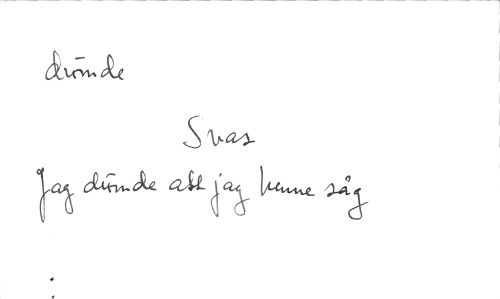 drömde
Jag drömde att jag henne såg
: